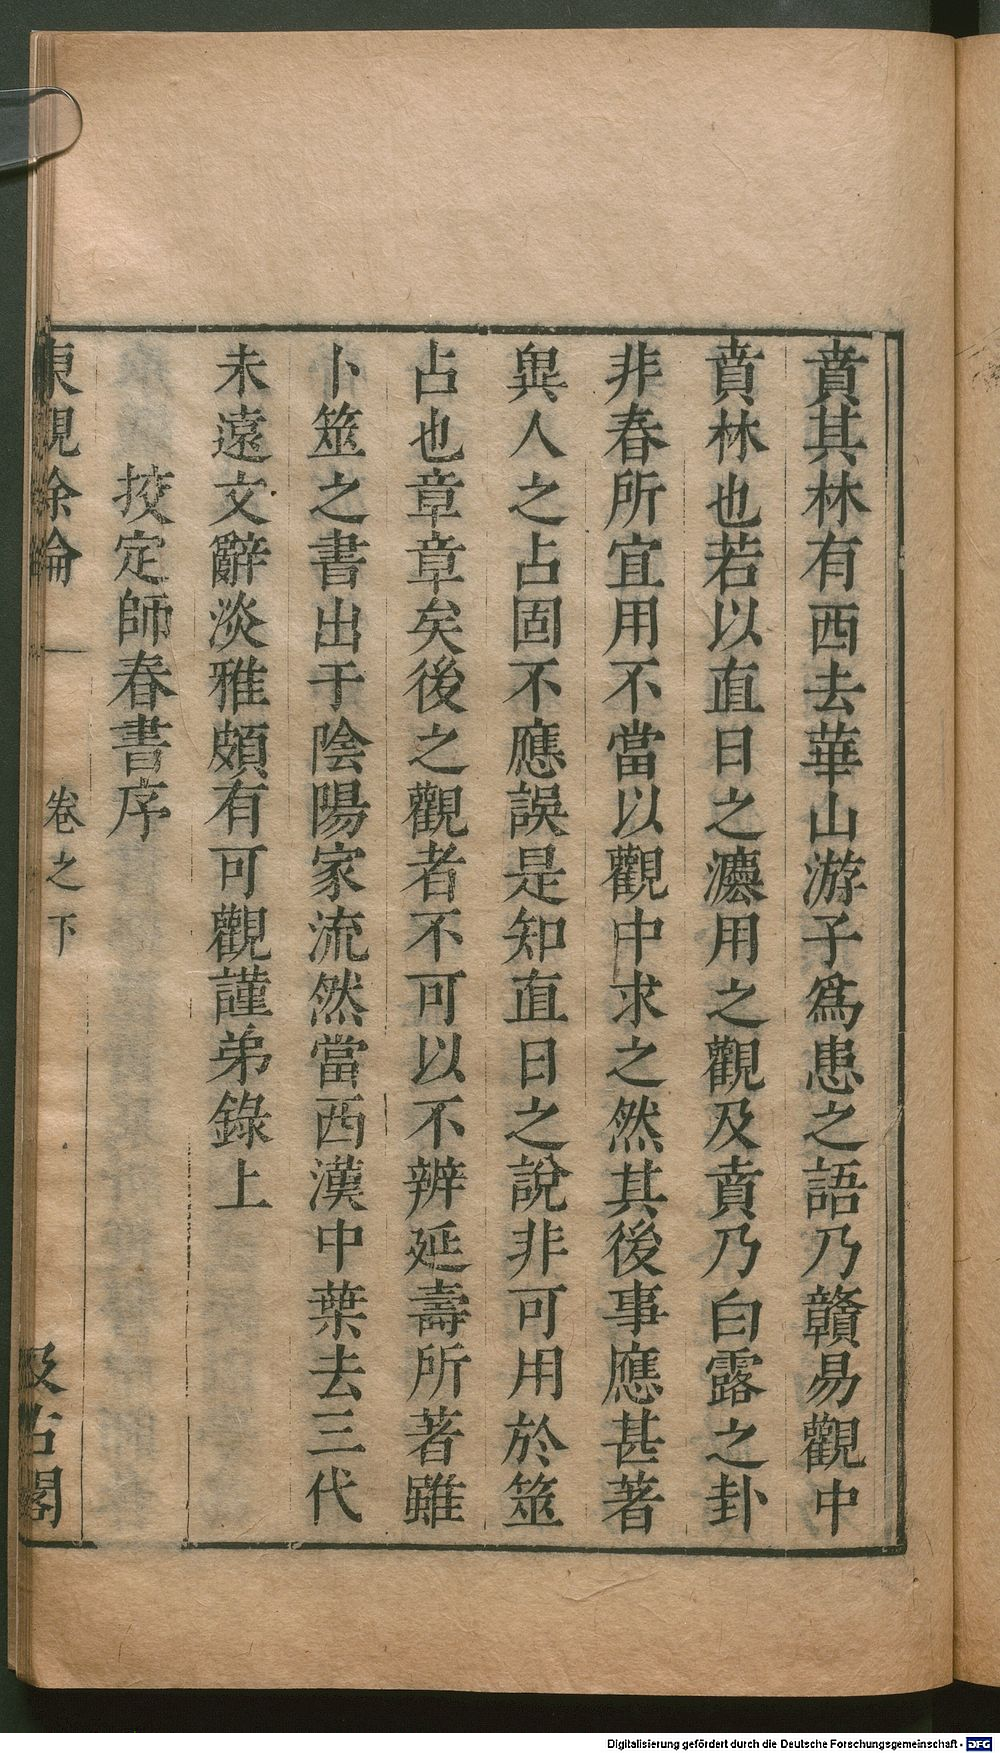 賁其林有西去華山游子爲患之語乃贛易觀中
賁林也若以直日之灋用之觀及賁乃白露之卦
非春所宜用不當以觀中求之然其後事應甚著
異人之占固不應誤是知直日之說非可用於筮
占也章章矣後之觀者不可以不辨延壽所著雖
卜筮之書出于陰陽家流然當西漢中葉去三代
未遠文辭淡雅頗有可觀謹弟錄上
挍定師春書序
東觀余論 一 卷之下 汲古閣
Digitalisierung gefördert durch die Deutsche Forschungsgemeinschaft - DFG